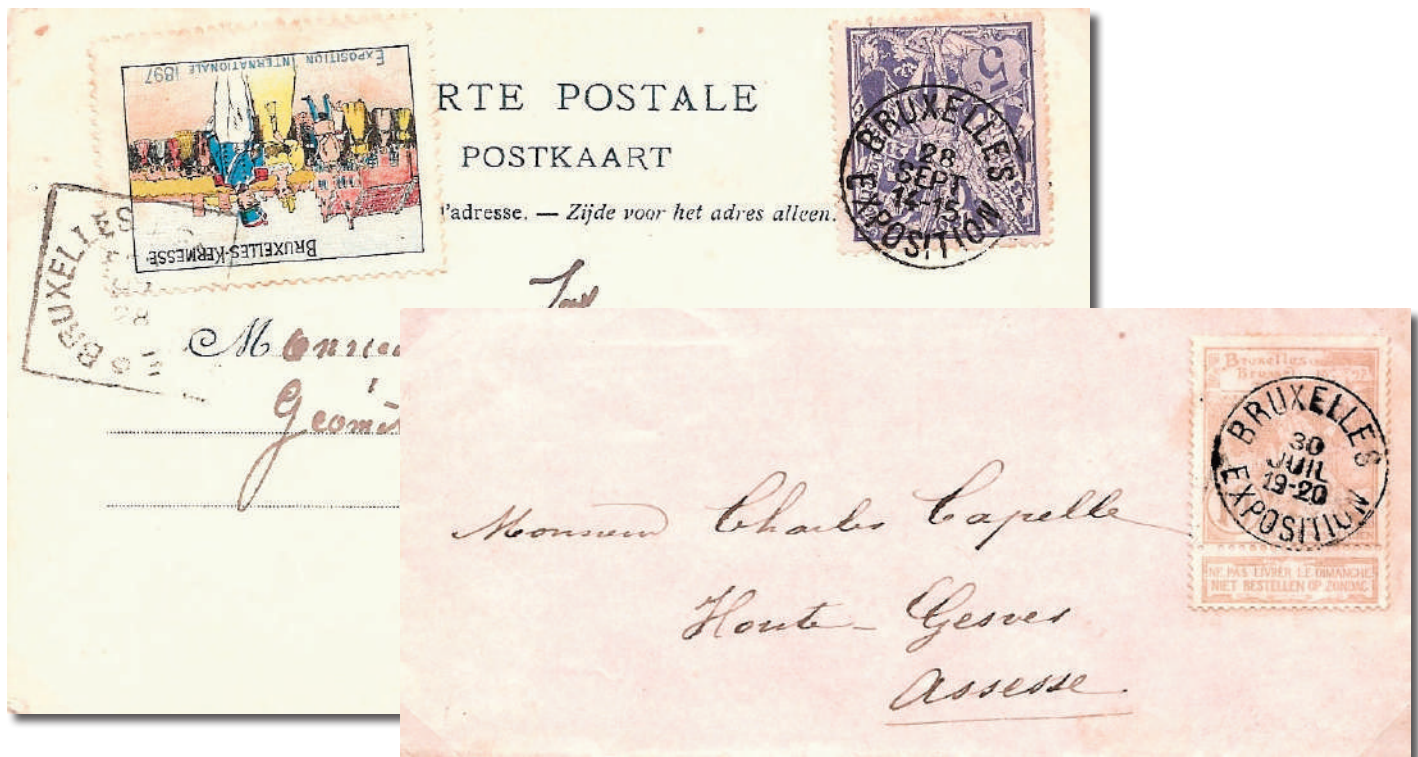 EXPOSITION INTERNATIONALE 1897
BRUXELLES-KERMESSE
RTE POSTALE
POSTKAART
l'adresse. — Zijde voor het adres alleen.
5
BRUXELLES
28
SEPT
14-15
EXPOSITION
BRUXELLES
Géomè
Bruxelles
BRUXELLES
30
JUIL
19-20
EXPOSITION
NE PAS LIVRER LE DIMANCHE
NIET BESTELLEN OP ZONDAG
Monsieur Charles Capelle
Houte - Gesves
Assesse